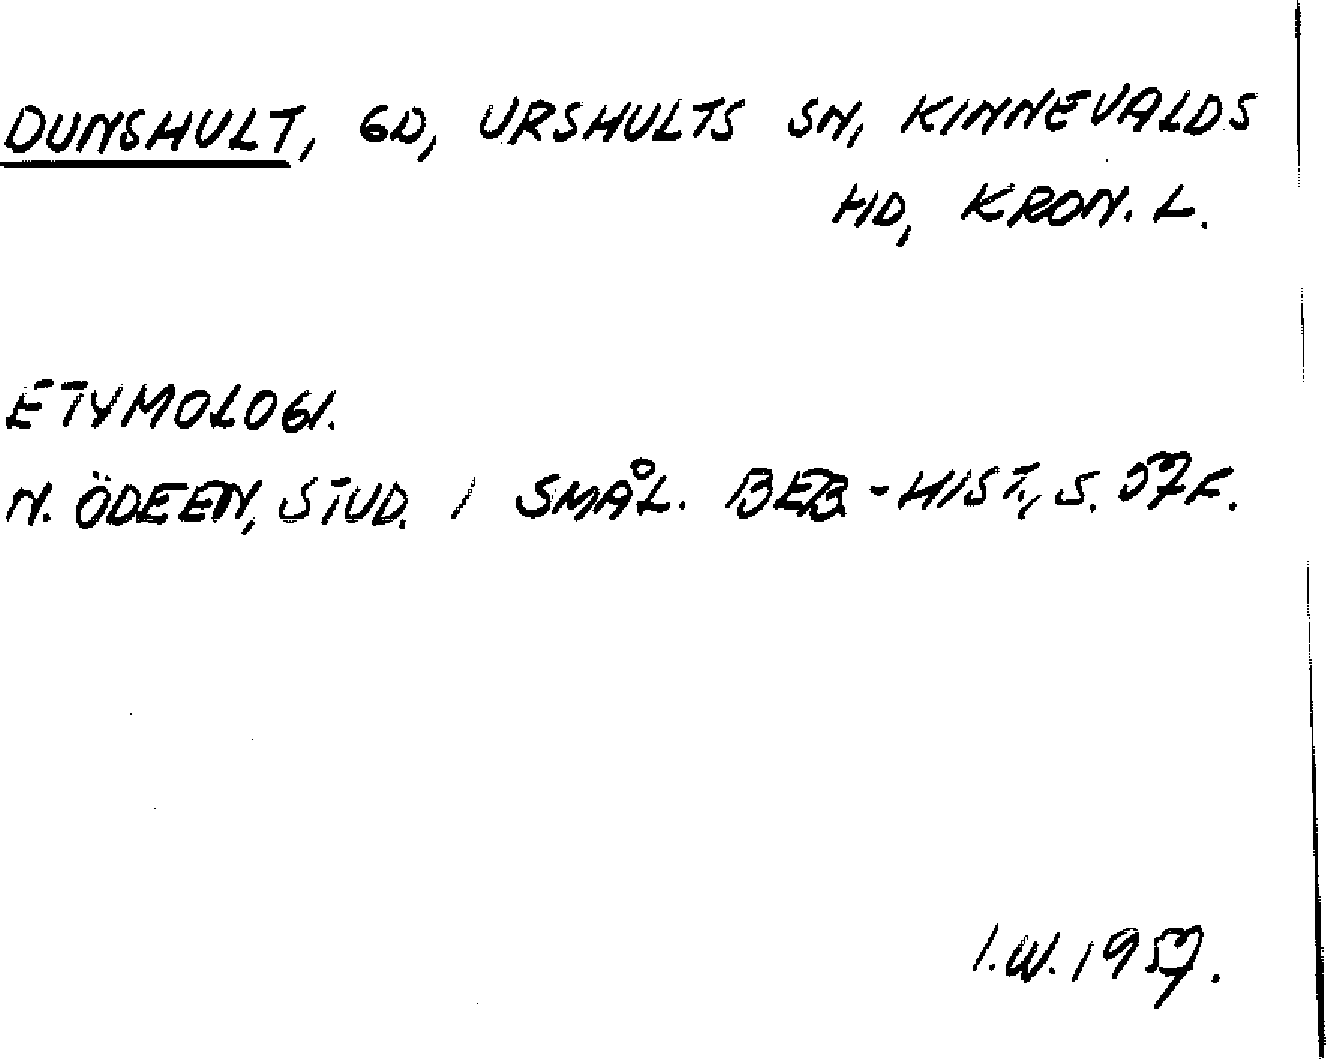 DUNSHULT, GD, URSHULTS SN, KINNEVALDS
HD, KRON. L.
ETYMOLOGI.
N. ÖDEEN, STUD. I SMÅL. BEB.-HIST., S. 57 F.
I.W. 1957.